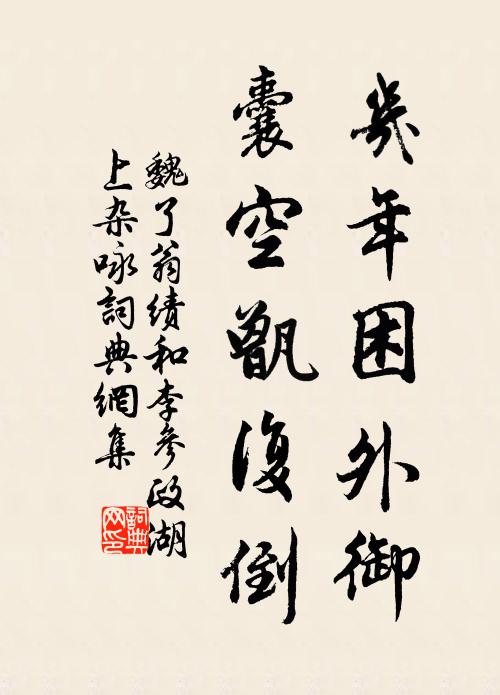 幾年困外御
囊空甑復倒
魏了翁績和李參政湖
上杂咏詞典網集
詞典
网印